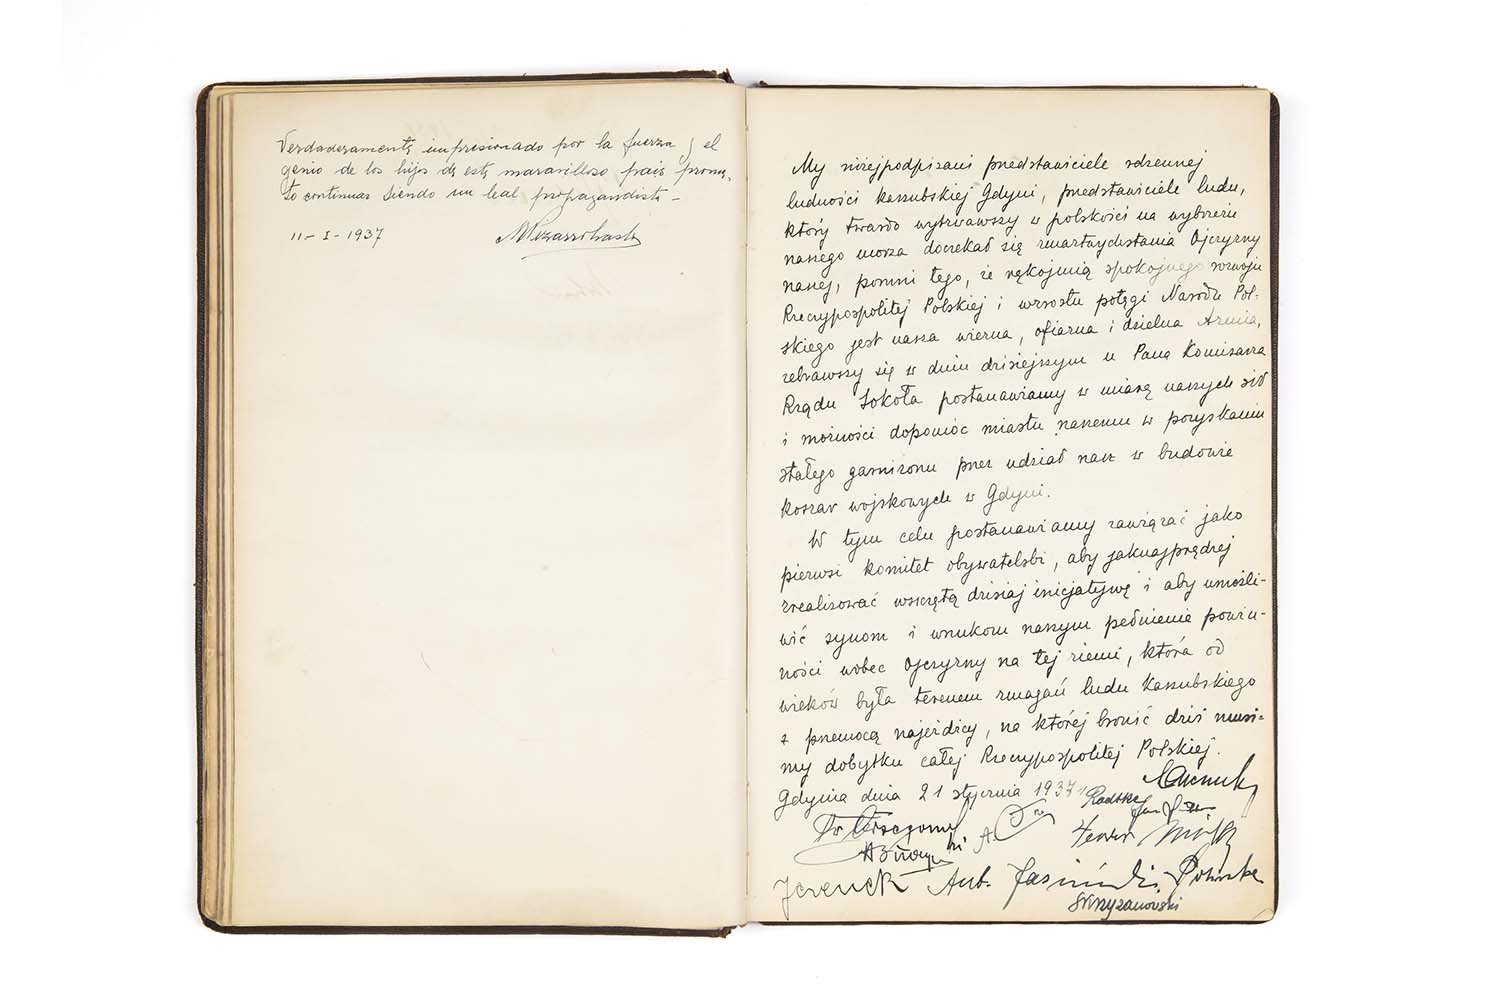 Verdaderamente impresionado por la fuerza y el
genio de los hijos de este maravilloso pais prome-
to continuar siendo un leal propagandista –
11 – I – 1937
My niżej podpisani przedstawiciele rdzennej
ludności kaszubskiej Gdyni, przedstawiciele ludu,
który twardo wytrwawszy w polskości na wybrzeżu
naszego morza doczekał się zmartwychstania Ojczyzny
naszej, pomni tego, że rękojmią spokojnego rozwoju
Rzeczypospolitej Polskiej i wzrostu potęgi Narodu Pol-
skiego jest nasza wierna, ofiarna i dzielna Armia,
zebrawszy się w dniu dzisiejszym u Pana Komisarza
Rządu Sokoła postanawiamy w miarę naszych sił
i możności dopomóc miastu naszemu w pozyskaniu
stałego garnizonu przez udział nasz w budowie
koszar wojskowych w Gdyni.
W tym celu postanawiamy zawiązać jako
pierwsi komitet obywatelski, aby jaknajprędzej
zrealizować wszczętą dzisiaj inicjatywę i aby umożli-
wić synom i wnukom naszym pełnienie powin-
ności wobec Ojczyzny na tej ziemi, która od
wieków była terenem zmagań ludu kaszubskiego
z przemocą najeźdźcy, na której bronić dziś musi-
my dobytku całej Rzeczypospolitej Polskiej.
Gdynia dnia 21 stycznia 1937
Radtke
Skrzyzanowski